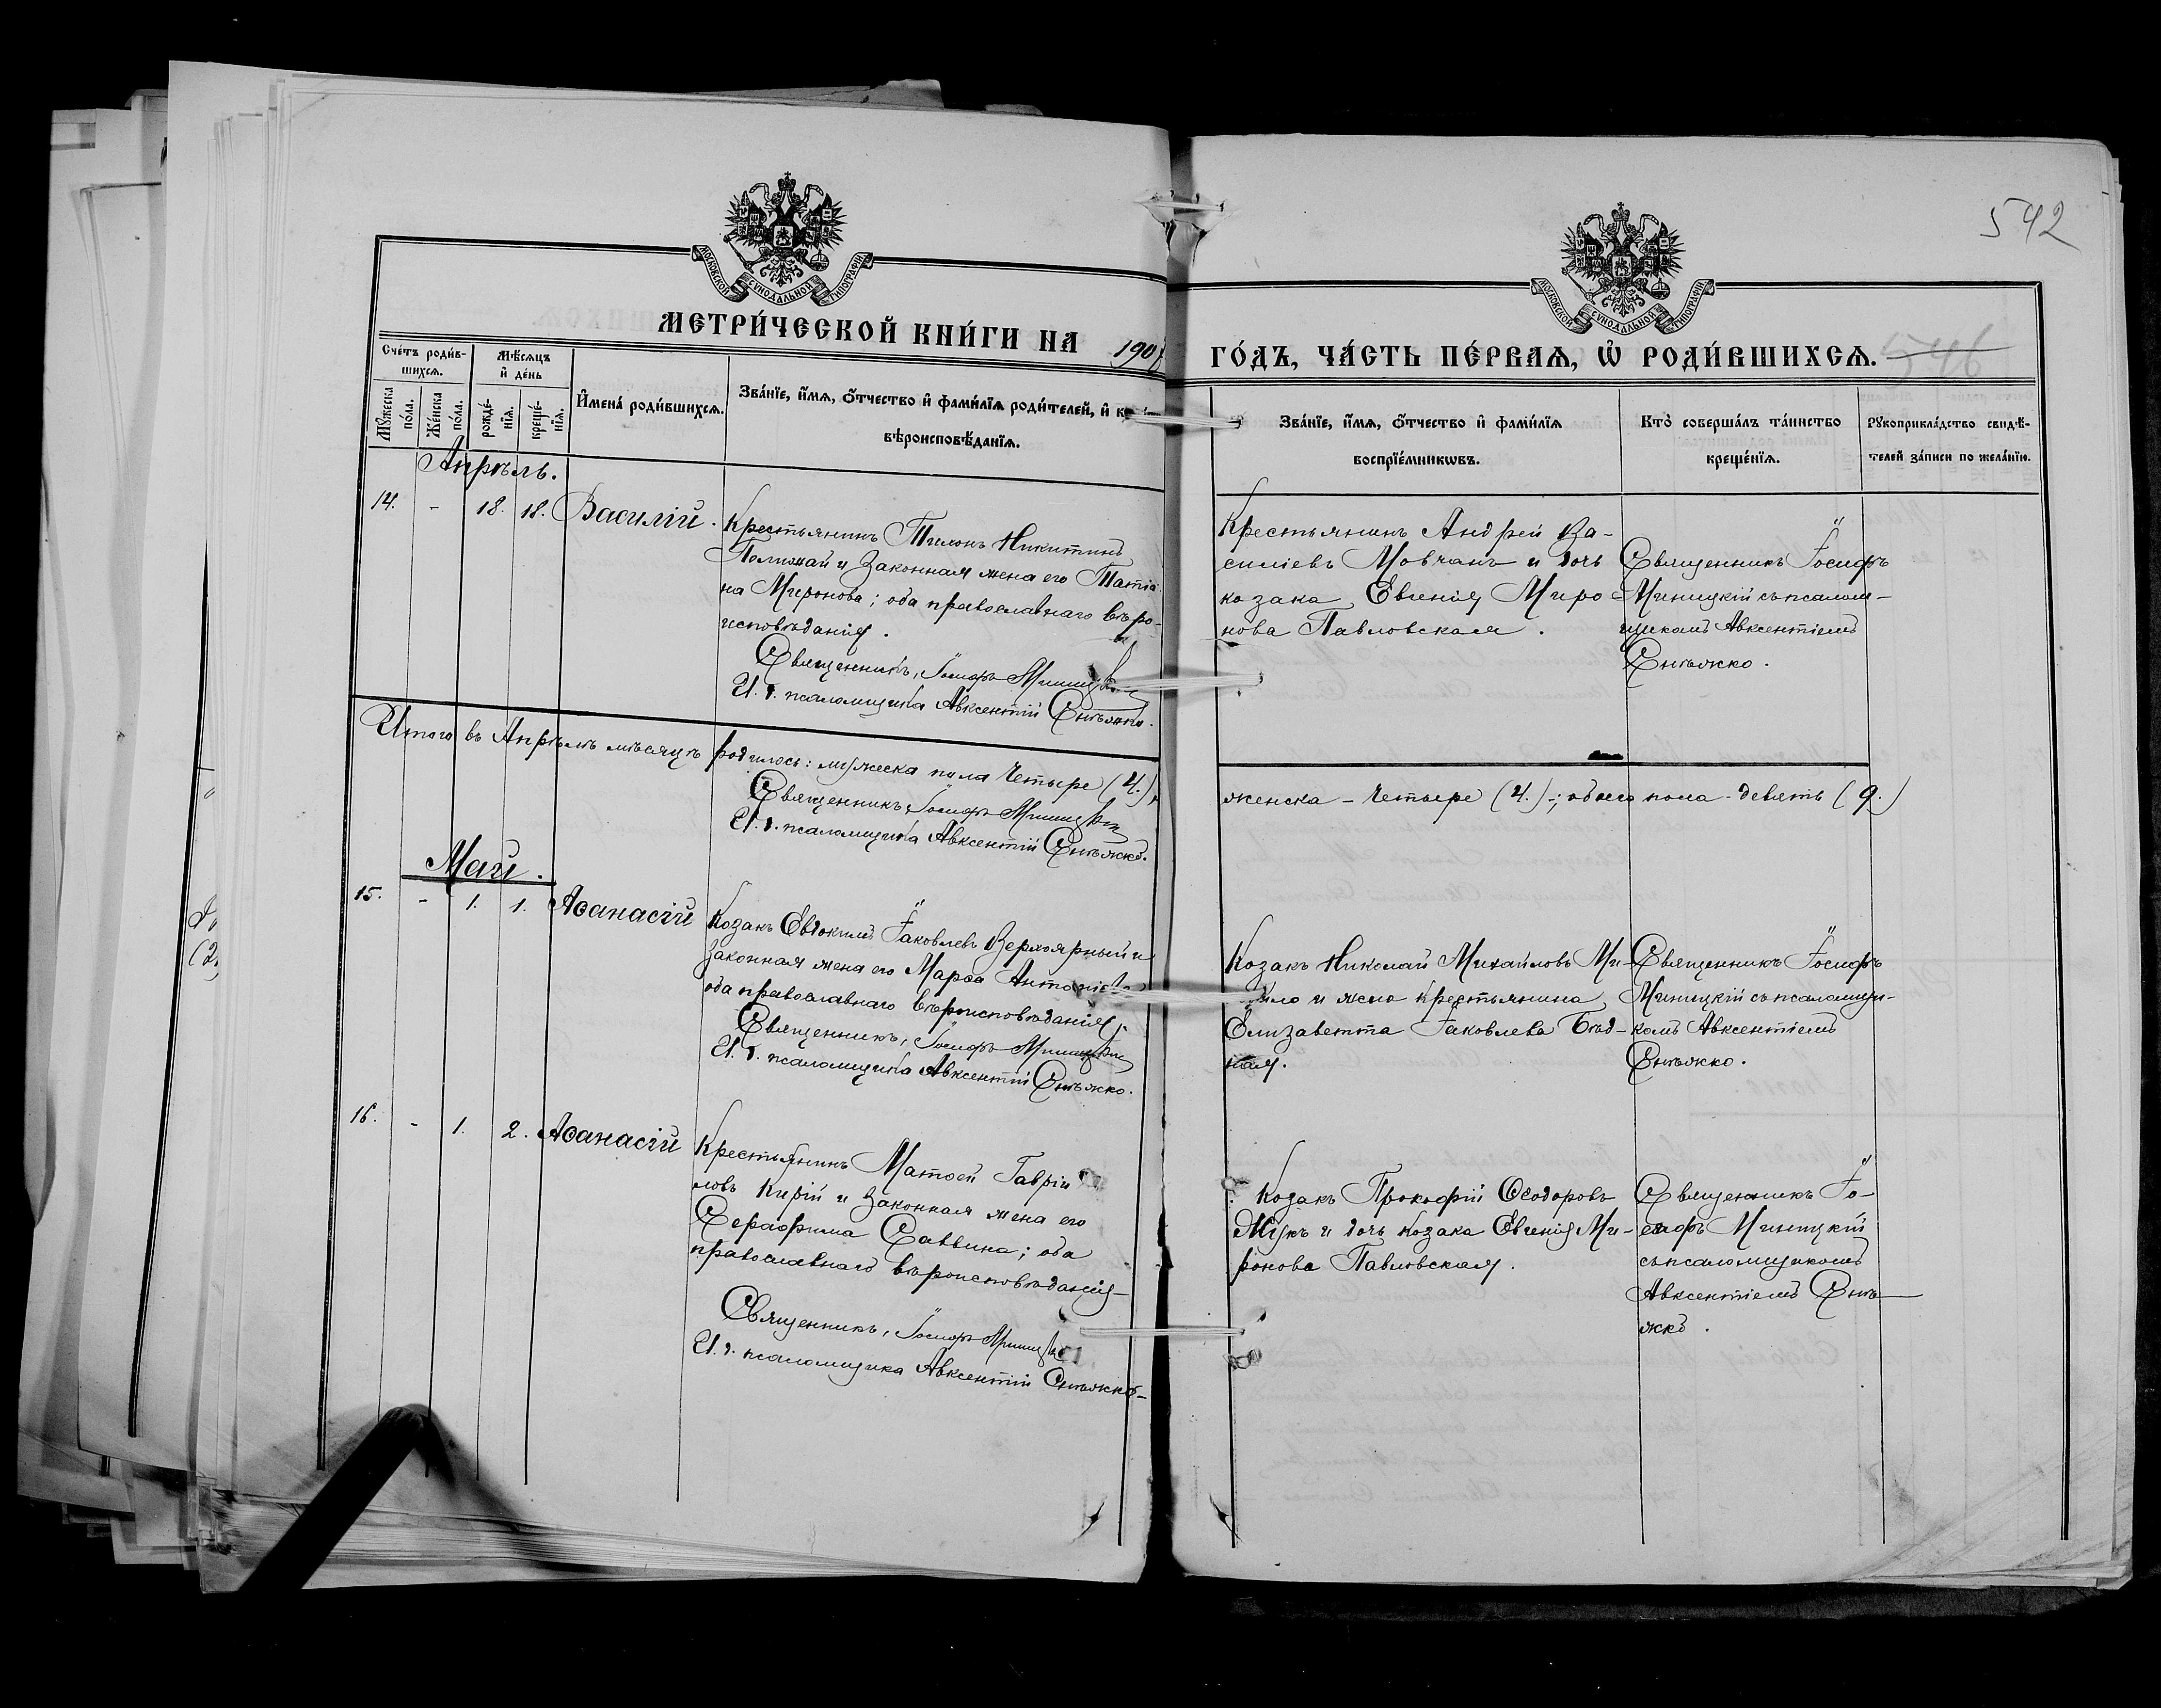 542
МОСКОВСКОЙ СѴНОДАЛЬНОЙ ТИПОГРАФІИ
МОСКОВСКОЙ СѴНОДАЛЬНОЙ ТИПОГРАФІИ
МЕТРИ́ЧЕСКОЙ КНИ́ГИ НА 190
ГО́ДЪ, ЧА́СТЬ ПЕ́РВАѦ, Ѡ҆ РОДИ́ВШИХСѦ.
546
Сче́тъ роди́в-
шихсѧ.
Мѣ́сѧцъ
и҆ де́нь
Мꙋ́жеска по́ла.
Же́нска по́ла.
рожде́-
нїѧ.
креще́-
нїѧ.
И҆мена̀ роди́вшихсѧ.
Зва́нїе, и҆́мѧ, ѻ҆́тчество и҆ фами́лїѧ роди́телей, и҆
вѣроисповѣ́данїѧ.
Зва́нїе, и҆́мѧ, ѻ҆́тчество и҆ фами́лїѧ
воспрїе́мникѡвъ.
Кто̀ соверша́лъ та́инство
креще́нїѧ.
Рꙋкоприкла́дство свидѣ́-
телей за́писи по жела́нїю.
Апрѣль.
14. - 18. 18. Василій.
Крестьянинъ Тихонъ Никитинъ
и законная жена его Татіа-
на Миронова; оба православнаго вѣро-
исповѣданія.
Священникъ, Іосифъ
И. д. псаломщика Авксентій Снѣжко.
Крестьянинъ Андрей Ва-
силіевъ Мовчанъ и дочь
козака Евгенія Миро-
нова Павловская.
Священникъ Іосифъ
Миницкій съ псалом-
щикомъ Авксентіемъ
Снѣжко.
Итого въ Апрѣлѣ мѣсяцѣ родилось: мужеска пола четыре (4.),
женска - четыре (4.)-; обоего пола - девять (9.)
Священникъ, Іосифъ
И. д. псаломщика Авксентій Снѣжко.
Май.
15. - 1. 1. Аѳанасій
Козакъ Евдокимъ Іаковлевъ Верхоярный и
законная жена его Марѳа
оба православнаго вѣроисповѣданія.
Священникъ, Іосифъ
И. д. псаломщика Авксентій Снѣжко.
Козакъ Николай Михайловъ Ми-
и жена крестьянина
Елизавета Іаковлева Бѣд-
ная.
Священникъ Іосифъ
Миницкій съ псаломщи-
комъ Авксентіемъ
Снѣжко.
16. - 1. 2. Аѳанасій
Крестьянинъ Матѳей Гаврiи
ловъ Кирій и законная жена его
Серафима Саввина; оба
православнаго вѣроисповѣданія
Священникъ, Іосифъ
И. д. псаломщика Авксентій Снѣжко
Козакъ Прокофій Ѳеодоровъ
и дочь козака Евгенія Ми-
ронова Павловская.
Священникъ Іо-
сифъ Миницкій
съ псаломщикомъ
Авксентіемъ Снѣ-
жко.